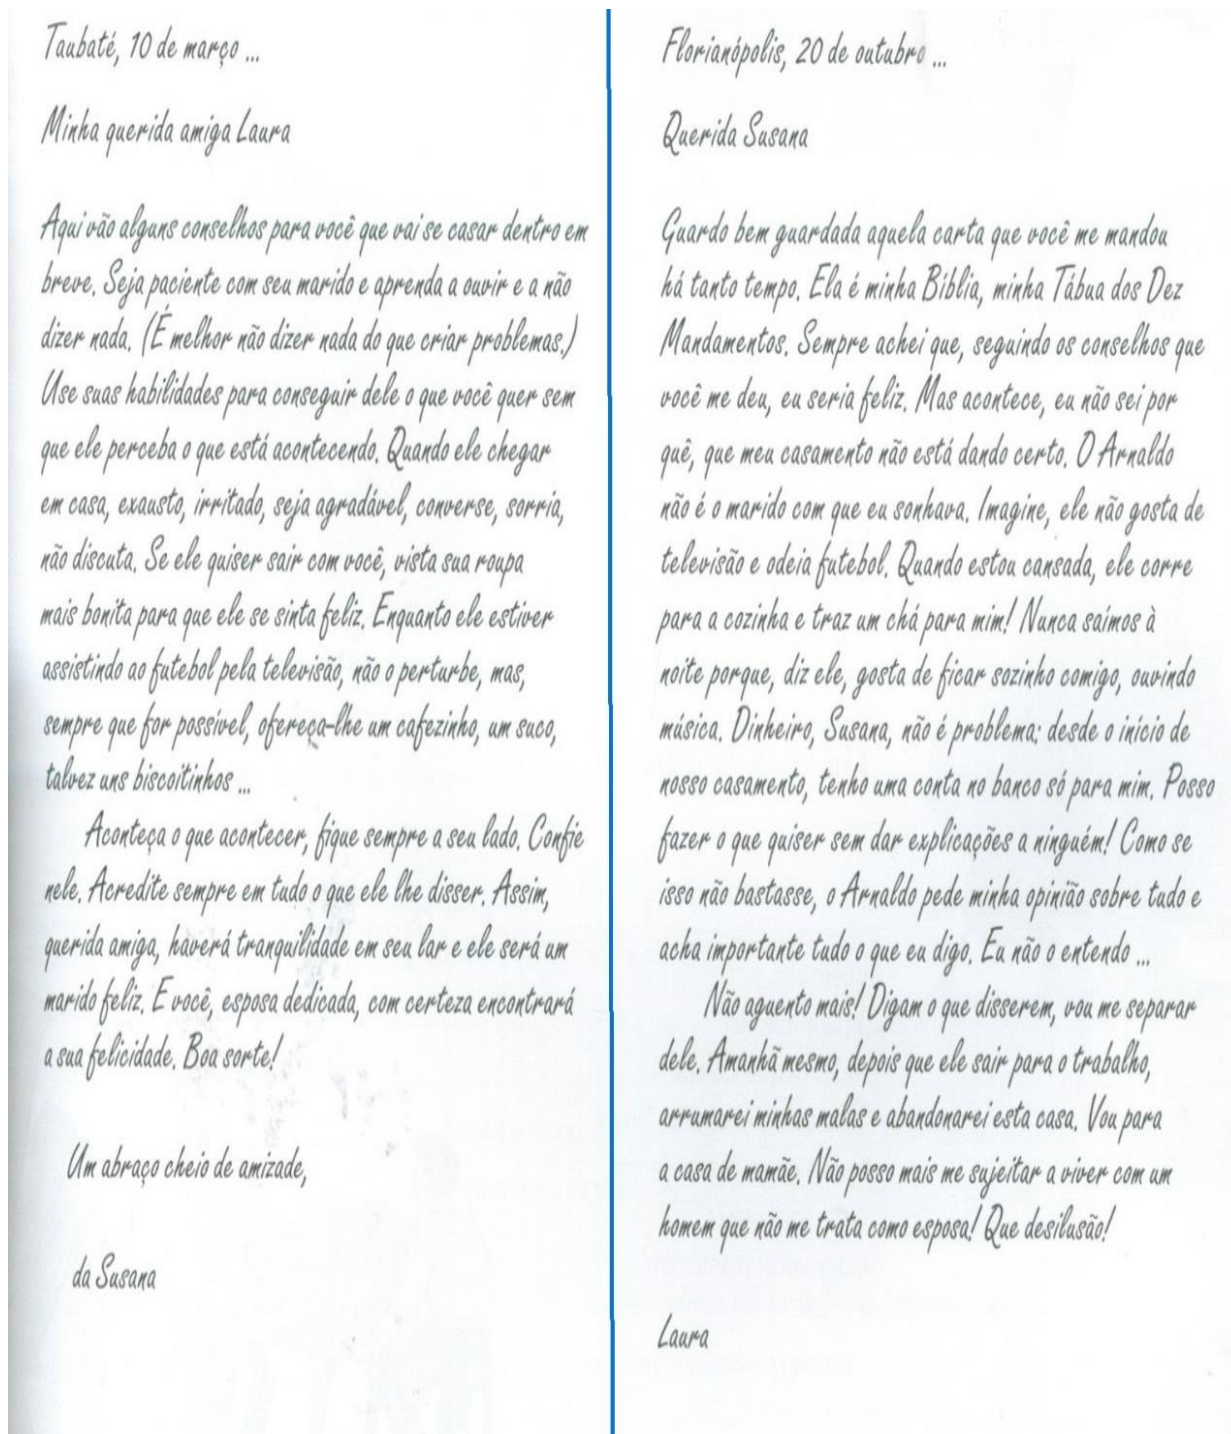 Taubaté, 10 de março ...
Minha querida amiga Laura
Aqui vão alguns conselhos para você que vai se casar dentro em
breve. Seja paciente com seu marido e aprenda a ouvir e a não
dizer nada. (É melhor não dizer nada do que criar problemas.)
Use suas habilidades para conseguir dele o que você quer sem
que ele perceba o que está acontecendo. Quando ele chegar
em casa, exausto, irritado, seja agradável, converse, sorria,
não discuta. Se ele quiser sair com você, vista sua roupa
mais bonita para que ele se sinta feliz. Enquanto ele estiver
assistindo ao futebol pela televisão, não o perturbe, mas,
sempre que for possível, ofereça-lhe um cafezinho, um suco,
talvez uns biscoitinhos ...
Aconteça o que acontecer, fique sempre a seu lado. Confie
nele. Acredite sempre em tudo o que ele lhe disser. Assim,
querida amiga, haverá tranquilidade em seu lar e ele será um
marido feliz. E você, esposa dedicada, com certeza encontrará
a sua felicidade. Boa sorte!
Um abraço cheio de amizade,
da Susana
Florianópolis, 20 de outubro ...
Querida Susana
Guardo bem guardada aquela carta que você me mandou
há tanto tempo. Ela é minha Bíblia, minha Tábua dos Dez
Mandamentos. Sempre achei que, seguindo os conselhos que
você me deu, eu seria feliz. Mas acontece, eu não sei por
quê, que meu casamento não está dando certo. O Arnaldo
não é o marido com que eu sonhava. Imagine, ele não gosta de
televisão e odeia futebol. Quando estou cansada, ele corre
para a cozinha e traz um chá para mim! Nunca saímos à
noite porque, diz ele, gosta de ficar sozinho comigo, ouvindo
música. Dinheiro, Susana, não é problema: desde o início de
nosso casamento, tenho uma conta no banco só para mim. Posso
fazer o que quiser sem dar explicações a ninguém! Como se
isso não bastasse, o Arnaldo pede minha opinião sobre tudo e
acha importante tudo o que eu digo. Eu não o entendo ...
Não aguento mais! Digam o que disserem, vou me separar
dele. Amanhã mesmo, depois que ele sair para o trabalho,
arrumarei minhas malas e abandonarei esta casa. Vou para
a casa de mamãe. Não posso mais me sujeitar a viver com um
homem que não me trata como esposa! Que desilusão!
Laura